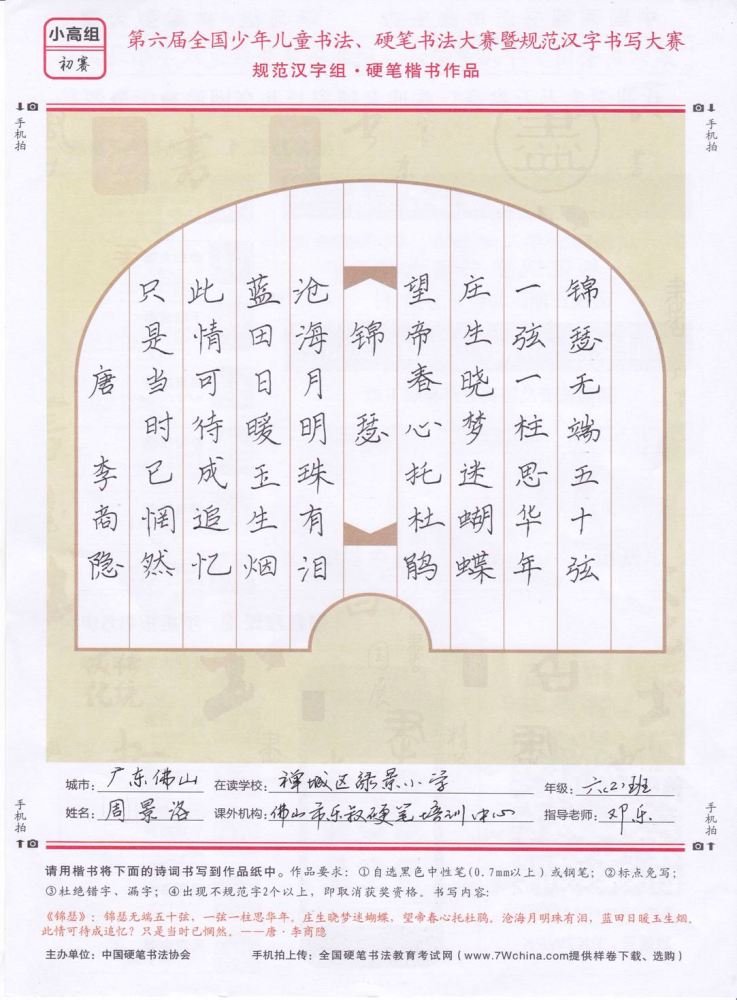 小高组
初赛
第六届全国少年儿童书法、硬笔书法大赛暨规范汉字书写大赛
规范汉字组·硬笔楷书作品
手机拍
手机拍
锦瑟无端五十弦
一弦一柱思华年
庄生晓梦迷蝴蝶
望帝春心托杜鹃
锦瑟
沧海月明珠有泪
蓝田日暖玉生烟
此情可待成追忆
只是当时已惘然
唐 李商隐
城市:广东佛山 在读学校:禅城区绿景小学 年级:六(2)班
姓名:周景洛 课外机构:佛山市乐毅硬笔培训中心 指导老师:邓乐
手机拍
手机拍
请用楷书将下面的诗词书写到作品纸中。作品要求:①自选黑色中性笔(0.7mm以上)或钢笔;②标点免写;
③杜绝错字、漏字;④出现不规范字2个以上,即取消获奖资格。书写内容:
《锦瑟》:锦瑟无端五十弦,一弦一柱思华年。庄生晓梦迷蝴蝶,望帝春心托杜鹃。沧海月明珠有泪,蓝田日暖玉生烟。
此情可待成追忆?只是当时已惘然。——唐·李商隐
主办单位:中国硬笔书法协会 手机拍上传:全国硬笔书法教育考试网(www.7Wchina.com提供样卷下载、选购)